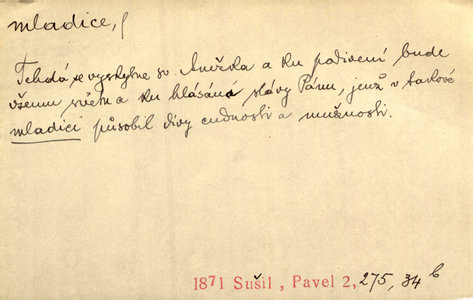 mladice, f
Tehdá se vyskytne sv. Anežka a ku podivení bude
všemu světu a ku hlásání slávy Pánu, jenž v takové
mladici působil divy cudnosti a mužnosti.
1871 Sušil, Pavel 2, 275, 34 b